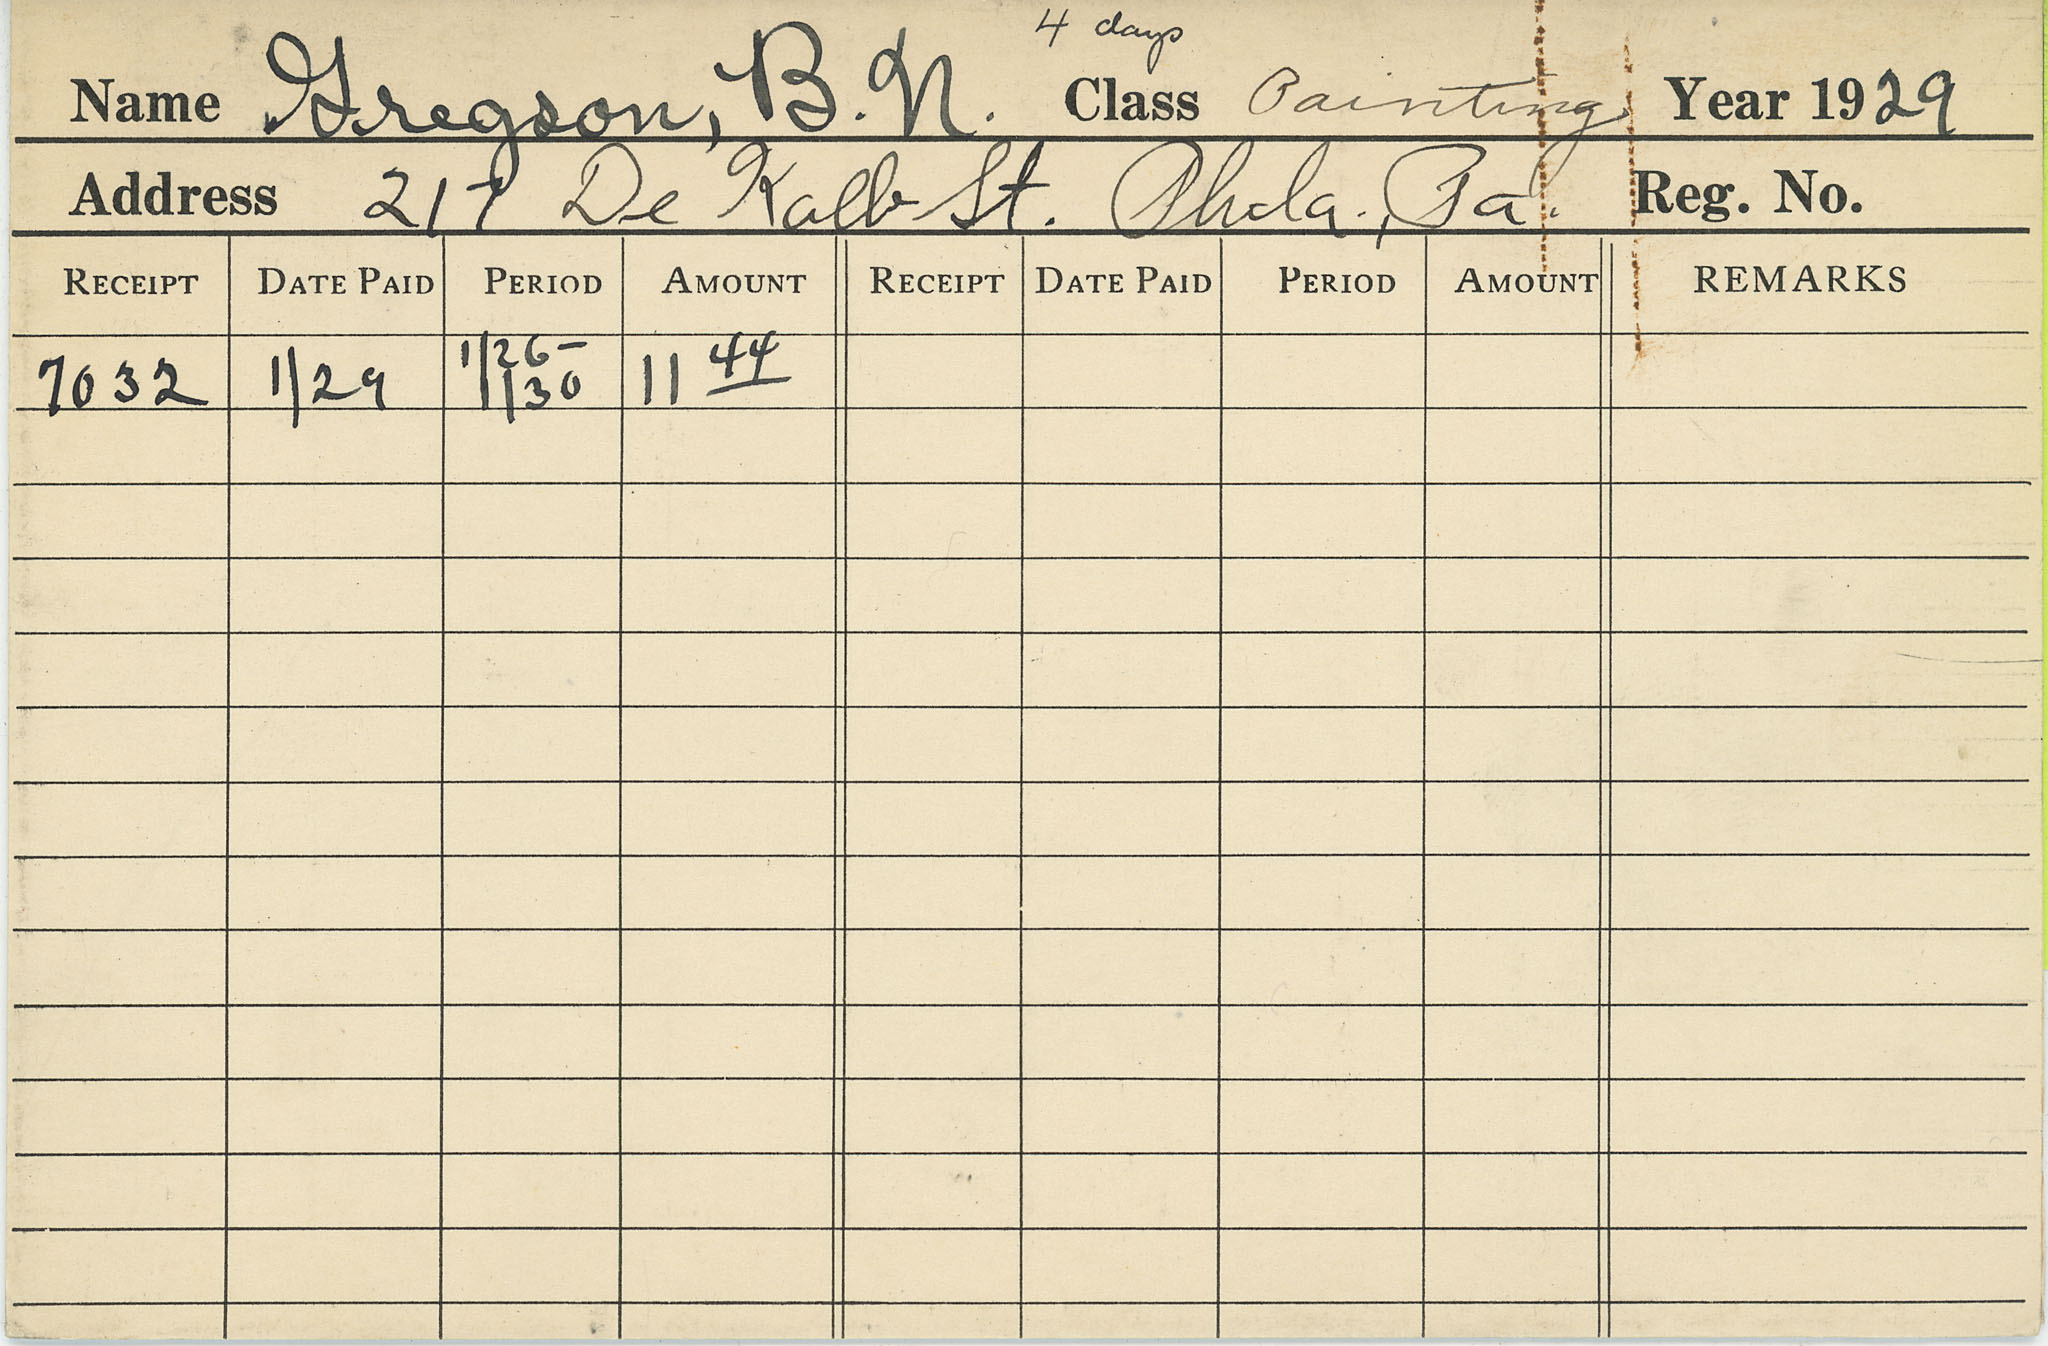 4 days
Name Gregson, B. N. Class Painting Year 1929
Address 217 De Kalb St. Phila., Pa. Reg. No.
RECEIPT DATE PAID PERIOD AMOUNT RECEIPT DATE PAID PERIOD AMOUNT REMARKS
7032 1/29 1/26- 11 44
1/30